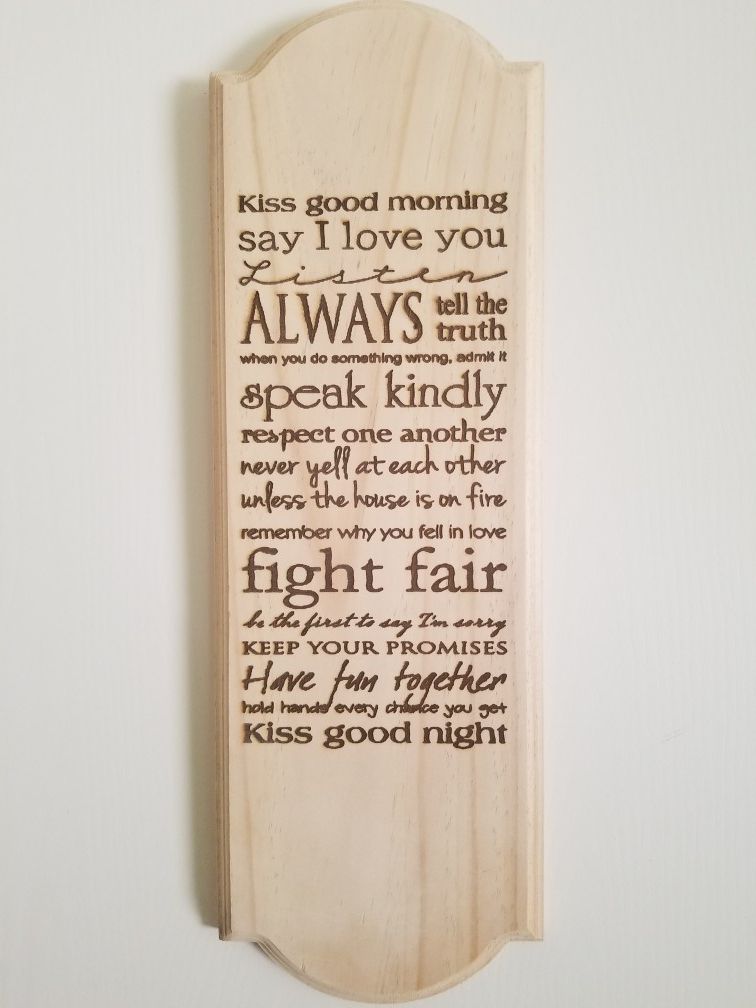 Kiss good morning
say I love you
Listen
ALWAYS tell the truth
when you do something wrong, admit it
speak kindly
respect one another
never yell at each other
unless the house is on fire
remember why you fell in love
fight fair
be the first to say I'm sorry
KEEP YOUR PROMISES
Have fun together
hold hands every chance you get
Kiss good night